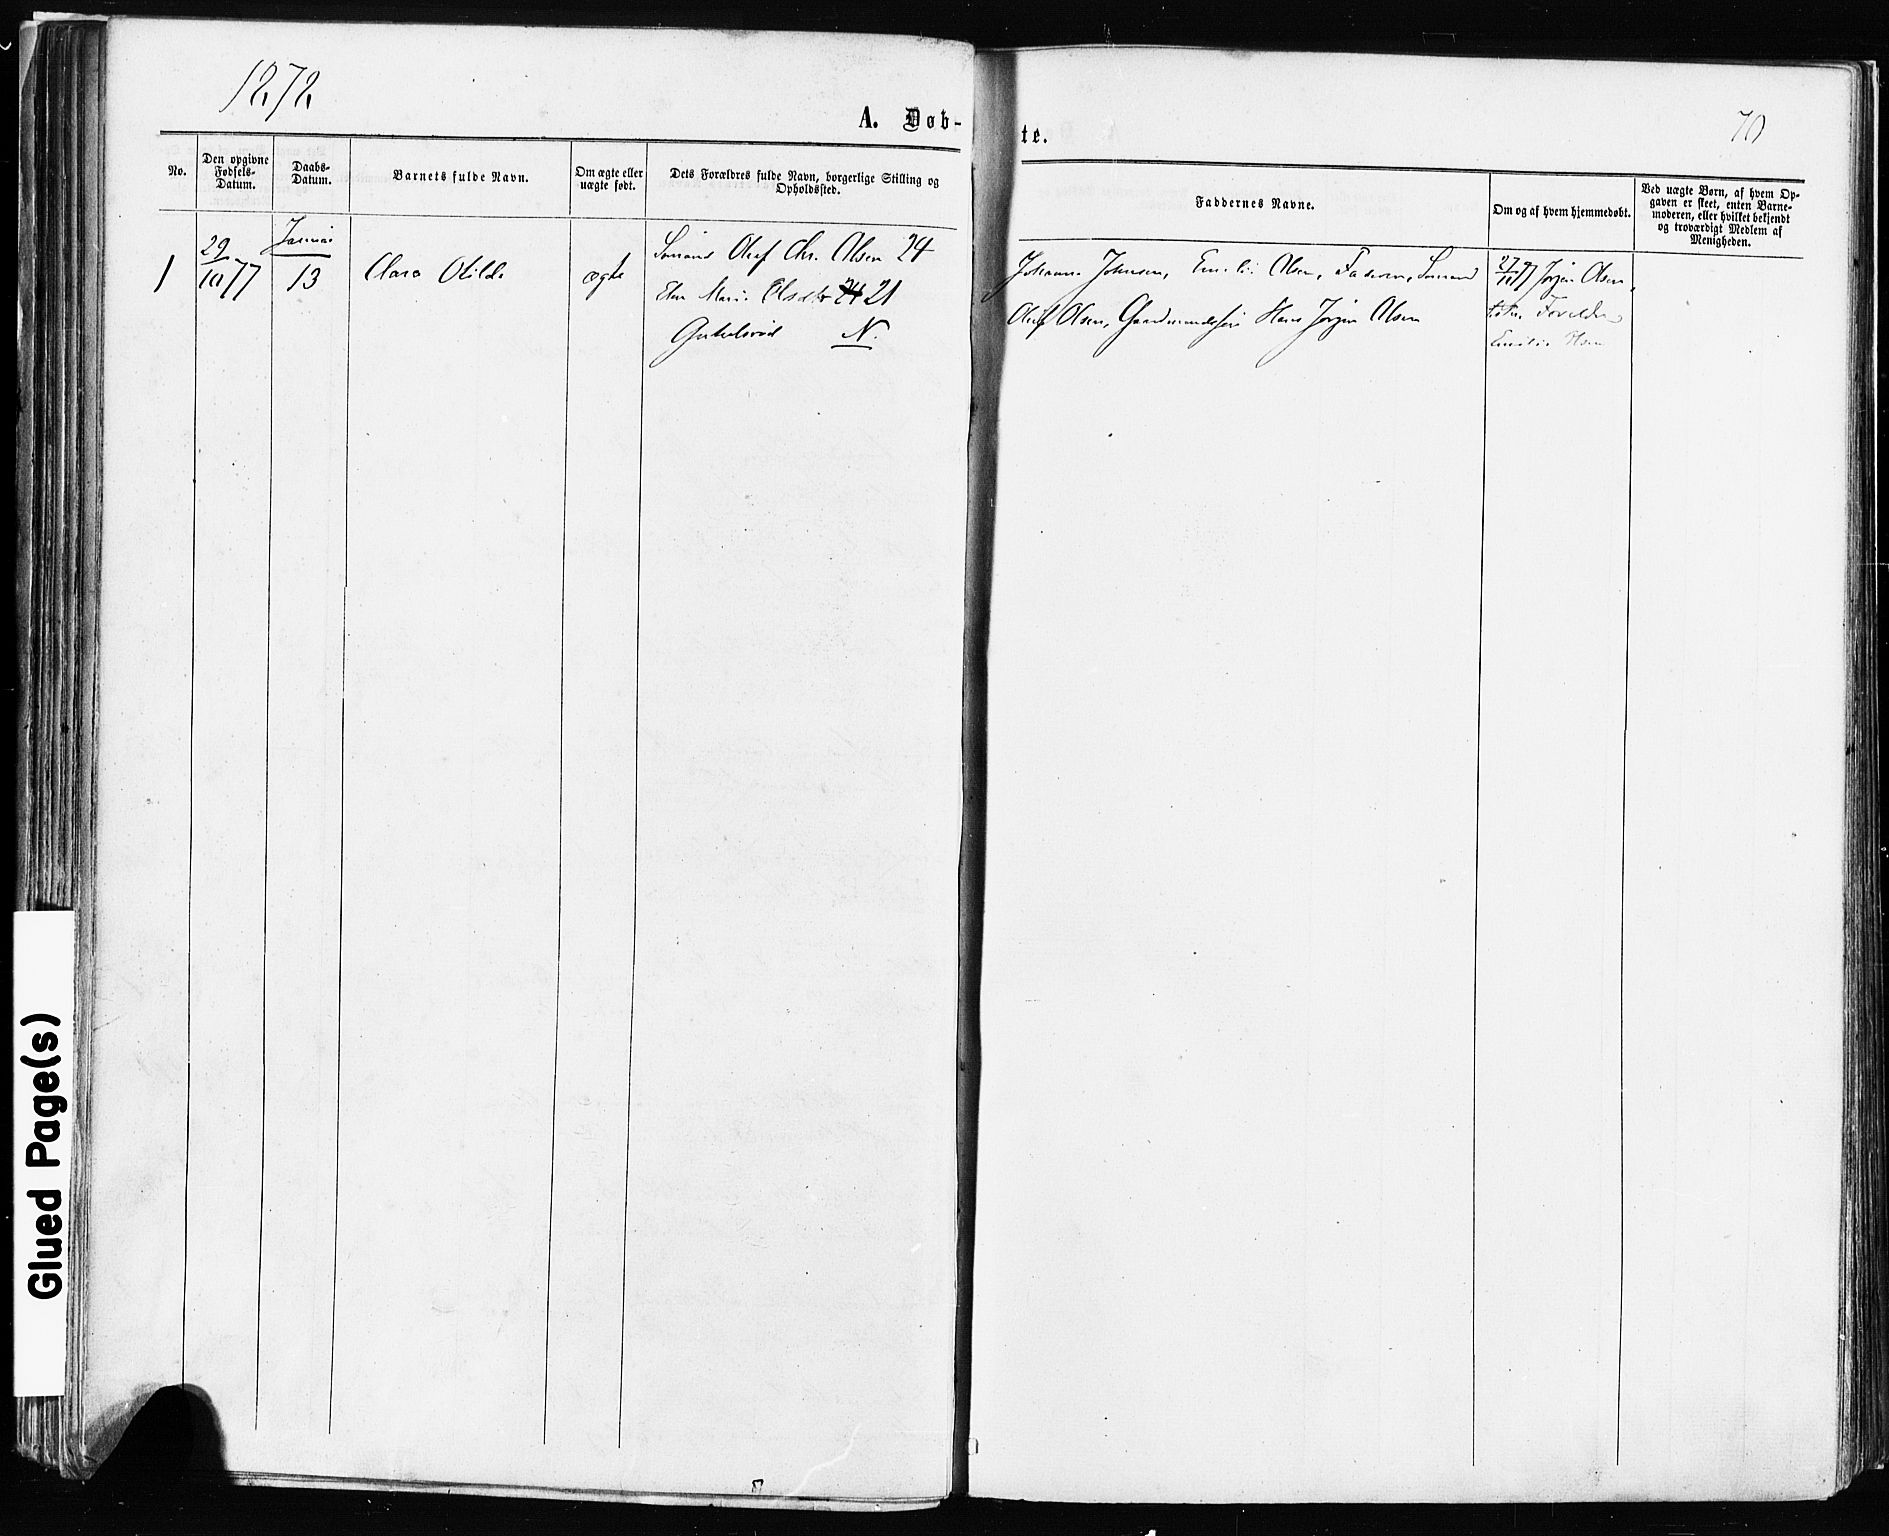 1878.
A. Døb-
No.
Den opgivne Fødsels-Datum.
Daabs-Datum.
Barnets fulde Navn.
Om ægte eller uægte født.
Dets Forældres fulde Navn, borgerlige Stilling og Opholdssted.
1
29/10 77
Januar
13
Clara Otilde
ægte
Sømand Oluf Chr. Olsen 24
Marie Olsdtr 24 21
N.
te.
70
Faddernes Navne.
Om og af hvem hjemmedøbt.
Ved uægte Børn, af hvem Opgaven er skeet, enten Barnemoderen, eller hvilket bekjendt og troværdigt Medlem af Menigheden.
Johanne Johnsen, Emilie Olsen, Faderen, Sømand
Oluf Olsen, Gaardmandssøn Hans Jørgen Olsen
77 Jørgen Olsen,
Forældre
Emilie Olsen
Glued Page(s)